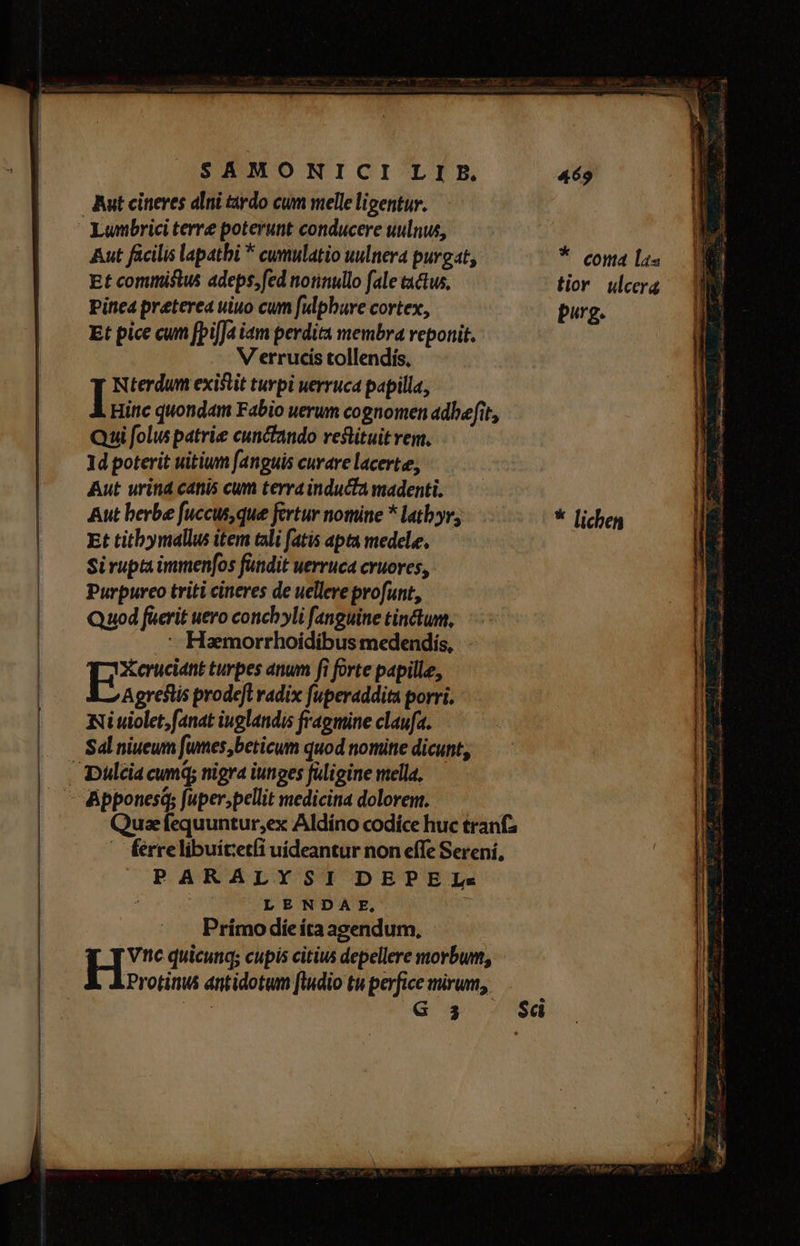 SAMONICI LIB. 469
Aut cineres alni tardo cum melle ligentur.
Lumbrici terræ poterunt conducere uulnus,
Aut facilis lapathi * cumulatio uulnera purgat,
* coma la⸗
Et commistus adeps, sed nonnullo sale tactus,
tior ulcera
Pinea præterea uiuo cum sulphure cortex,
purg.
Et pice cum spissa iam perdita membra reponit.
Verrucis tollendis.
INterdum existit turpi uerruca papilla,
Hinc quondam Fabio uerum cognomen adhæsit,
Qui solus patriæ cunctando restituit rem.
Id poterit uitium sanguis curare lacertæ,
Aut urina canis cum terra inducta madenti.
Aut herbæ succus, quæ fertur nomine * lathyr,
* lichen
Et tithymallus item tali satis apta medelæ.
Si rupta immensos fundit uerruca cruores,
Purpureo triti cineres de uellere prosunt,
Quod fuerit uero conchyli sanguine tinctum.
Hæmorrhoidibus medendis,
EXcruciant turpes anum si forte papillæ,
Agrestis prodest radix superaddita porri.
Ni uiolet, sanat iuglandis fragmine clausa.
Sal niueum sumes, beticum quod nomine dicunt,
Dulcia cumq; nigra iunges fuligine mella.
Apponesq; super, pellit medicina dolorem.
Quæ sequuntur, ex Aldino codice huc transs
ferre libuit: etsi uideantur non esse Sereni,
PARALYSI DEPEL⸗
LENDAE,
Primo die ita agendum,
HVnc quicunq; cupis citius depellere morbum,
Protinus antidotum studio tu perfice mirum,
G 3 Sci